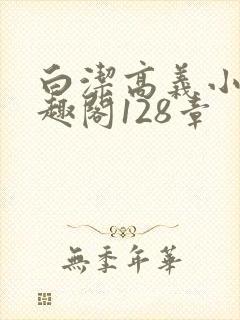 白潔高義小
趣閣128章
無季年華